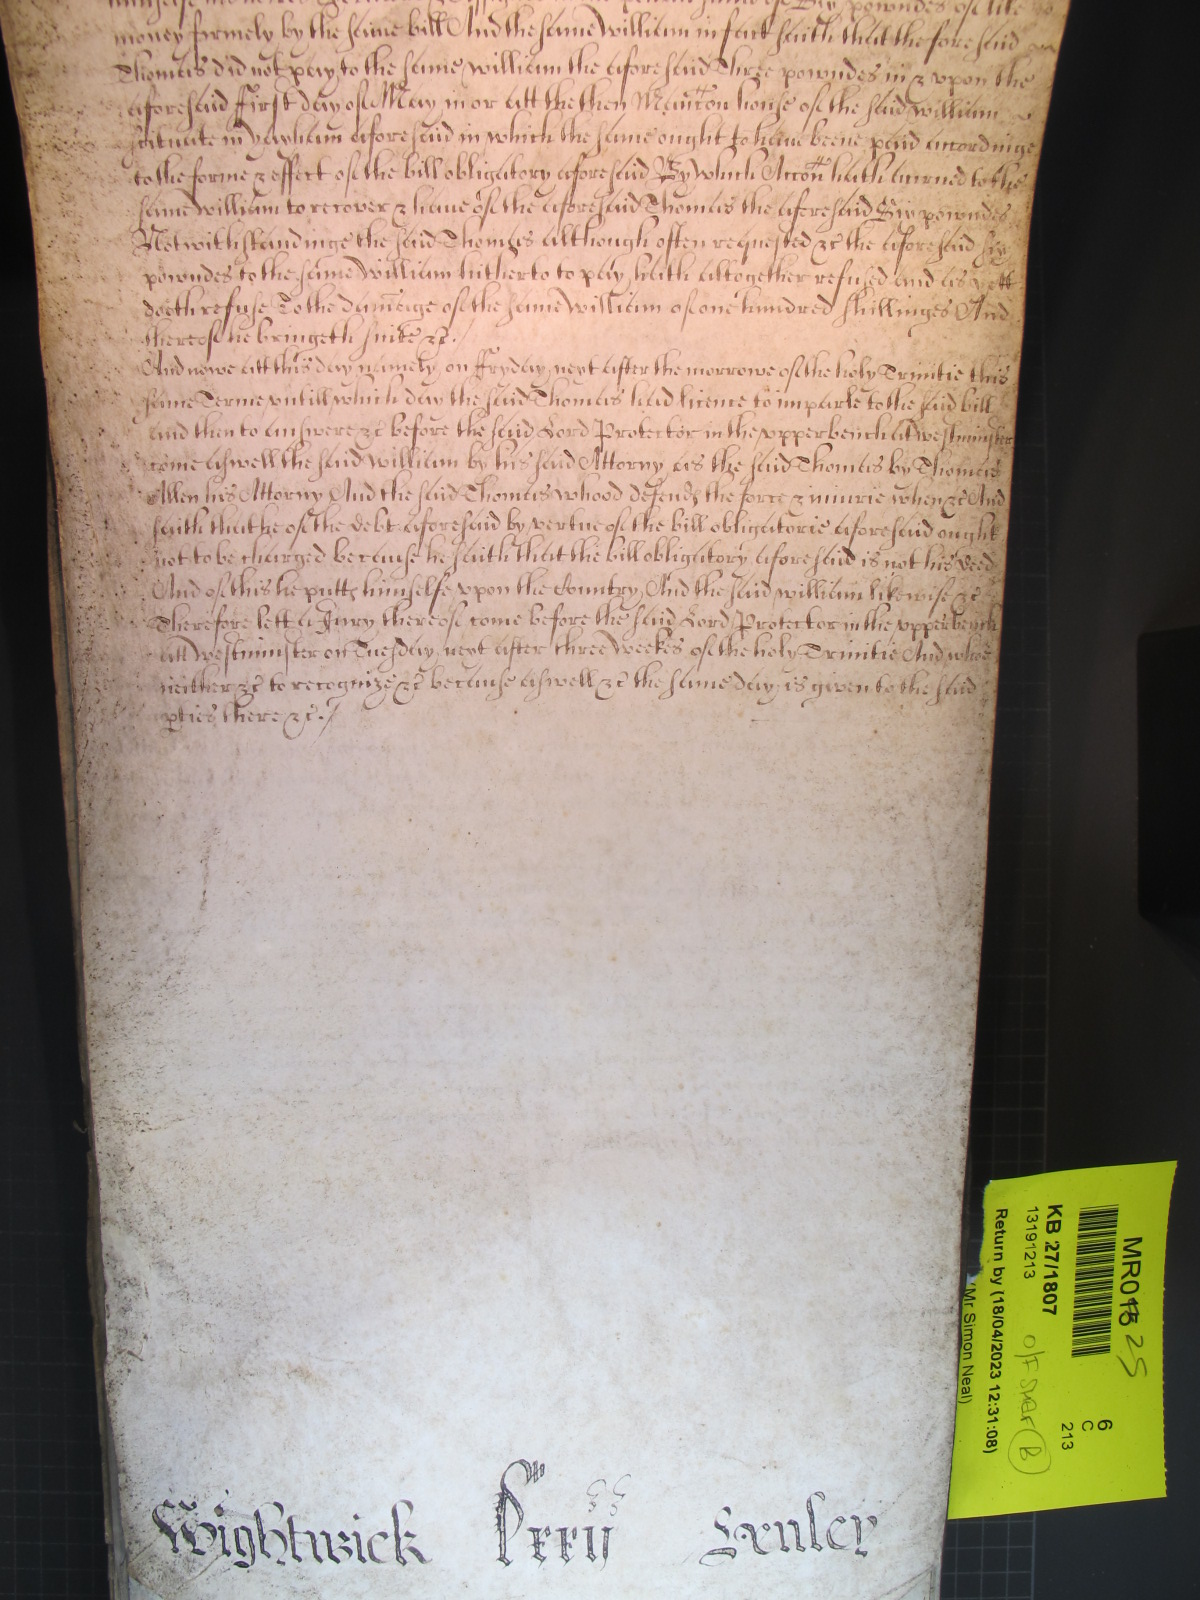 money firmely by the same bill And the same William in fact saith that the foresaid
Thomas did not pay to the same William the aforesaid Three powndes in & vpon the
aforesaid First day of May in or att the then Mancōn house of the said William
scituate in aforesaid in which the same ought to haue beene paid accordinge
to the forme & effect of the bill obligatory aforesaid By which Accōn hath accrued to the
same William to recover & haue of the aforesaid Thomas the aforesaid Six powndes
Notwithstandinge the said Thomas although often requested &c the aforesaid six
powndes to the same William hitherto to pay hath altogether refused and as yett
doeth refuse To the damage of the same William of one hundred shillinges And
thereof he bringeth suite &c./
And nowe att this day namely on ffryday next after the morrowe of the holy Trinitie this
same Terme vntill which day the said Thomas had licence to imparle to the said bill
and then to answere &c before the said Lord Protector in the vpper bench att westminster
come aswell the said William by his said Attorny as the said Thomas by Thomas
Allen his Attorny And the said Thomas whood defends the force & iniurie when &c And
saith that he of the debt aforesaid by vertue of the bill obligatorie aforesaid ought
not to be charged because he saith that the bill obligatory aforesaid is not his deed
And of this he putts himselfe vpon the Country And the said William likewise &c
Therefore lett a Jury thereof come before the said Lord Protector in the vpper bench
att Westminster on Tuesday next after three weekes of the holy Trinitie And whoe
neither &c to recognize &c because aswell &c the same day is given to the said
pties there &c./
Wightwick
MR018 25
6
C
213
KB 27/1807
13191213
Return by (18/04/2023 12:31:08)
(Mr Simon Neal)
B